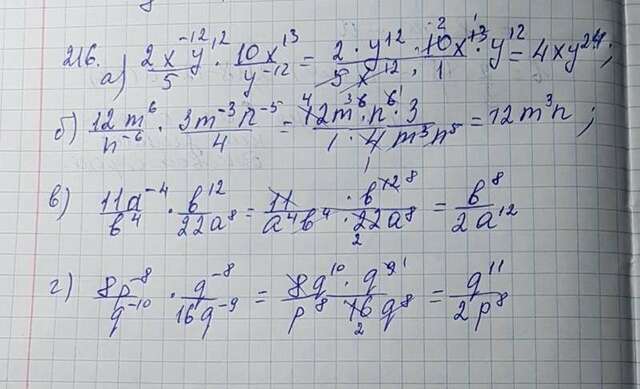 216. а) 2x⁻¹²y¹²/5 · 10x¹³/y⁻¹² = 2 · y¹² · 10x¹³ · y¹²/5x¹² · 1 = 4xy²⁴;
б) 12m⁶/n⁻⁶ · 3m⁻³n⁻⁵/4 = 12m⁶ · n⁶ · 3/1 · 4m³n⁵ = 12m³n;
в) 11a⁻⁴/b⁴ · b¹²/22a⁸ = 11 · b¹²/a⁴b⁴ · 22a⁸ = b⁸/2a¹²
г) 8p⁻⁸/q⁻¹⁰ · q⁻⁸/16q⁻⁹ = 8q¹⁰ · q⁹/p⁸ · 16q⁸ = q¹¹/2p⁸